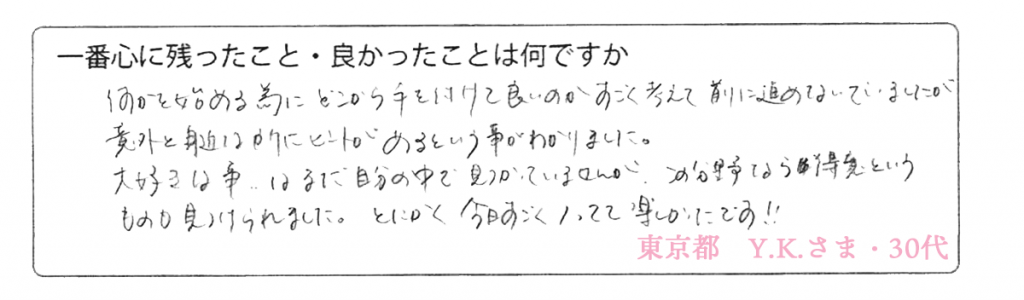 一番心に残ったこと・良かったことは何ですか
何かを始める為にどこから手を付けて良いのかすごく考えて前に進めないでいましたが
意外と身近な所にヒントがあるという事がわかりました。
大好きな事..はまだ自分の中で見つかっていませんが、この分野なら得意という
ものも見つけられました。とにかく今日すごく ためになって楽しかったです!!
東京都 Y.K.さま・30代